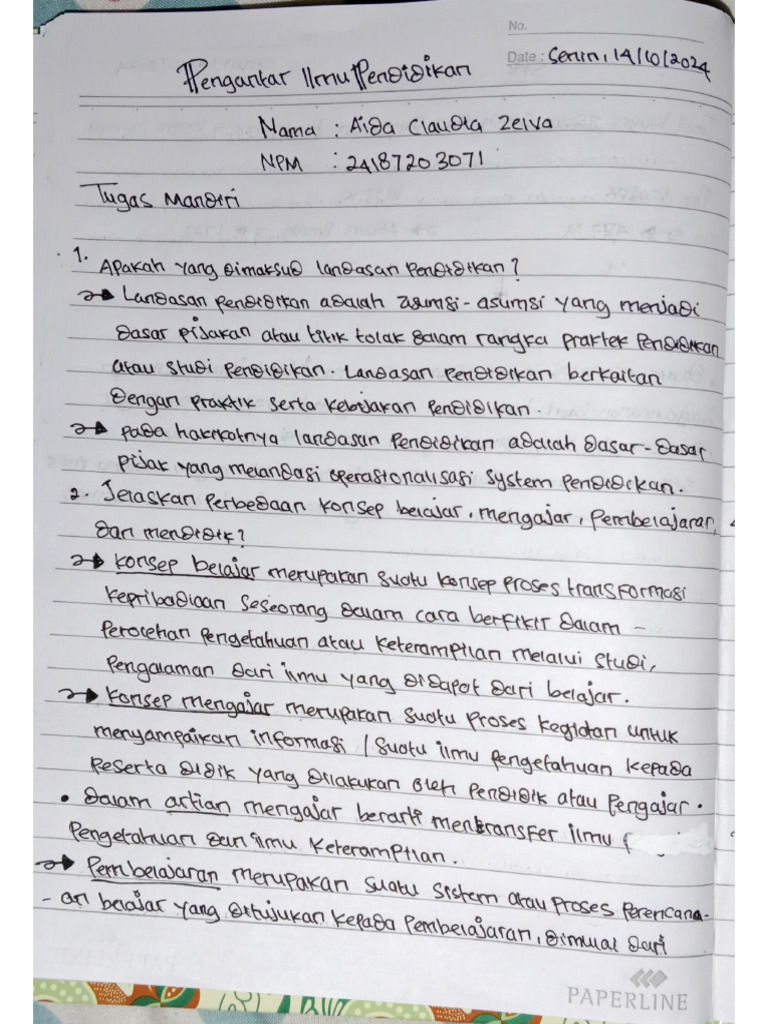 No.
Date : Senin, 14/10/2024
Pengantar Ilmu Pendidikan
Nama : Aida Claudia Zelva
NPM : 24187203071
Tugas Mandiri
1. Apakah yang dimaksud landasan Pendidikan?
→ Landasan pendidikan adalah asumsi-asumsi yang menjadi
dasar pijakan atau titik tolak dalam rangka praktek Pendidikan
atau studi pendidikan. Landasan pendidikan berkaitan
dengan praktik serta kebijakan pendidikan.
→ pada hakikatnya landasan pendidikan adalah dasar-dasar
pijak yang melandasi operasionalisasi system pendidikan.
2. Jelaskan perbedaan konsep belajar, mengajar, pembelajaran,
dan mendidik?
→ konsep belajar merupakan suatu konsep proses transformasi
kepribadiaan seseorang dalam cara berfikir dalam -
perolehan pengetahuan atau keterampilan melalui studi,
pengalaman dari ilmu yang didapat dari belajar.
→ konsep mengajar merupakan suatu proses kegiatan untuk
menyampaikan informasi / suatu ilmu pengetahuan kepada
peserta didik yang dilakukan oleh pendidik atau pengajar.
• dalam artian mengajar berarti mentransfer ilmu
pengetahuan dan ilmu keterampilan.
→ Pembelajaran merupakan suatu sistem atau proses perencana-
- an belajar yang ditujukan kepada pembelajaran, dimulai dari
PAPERLINE